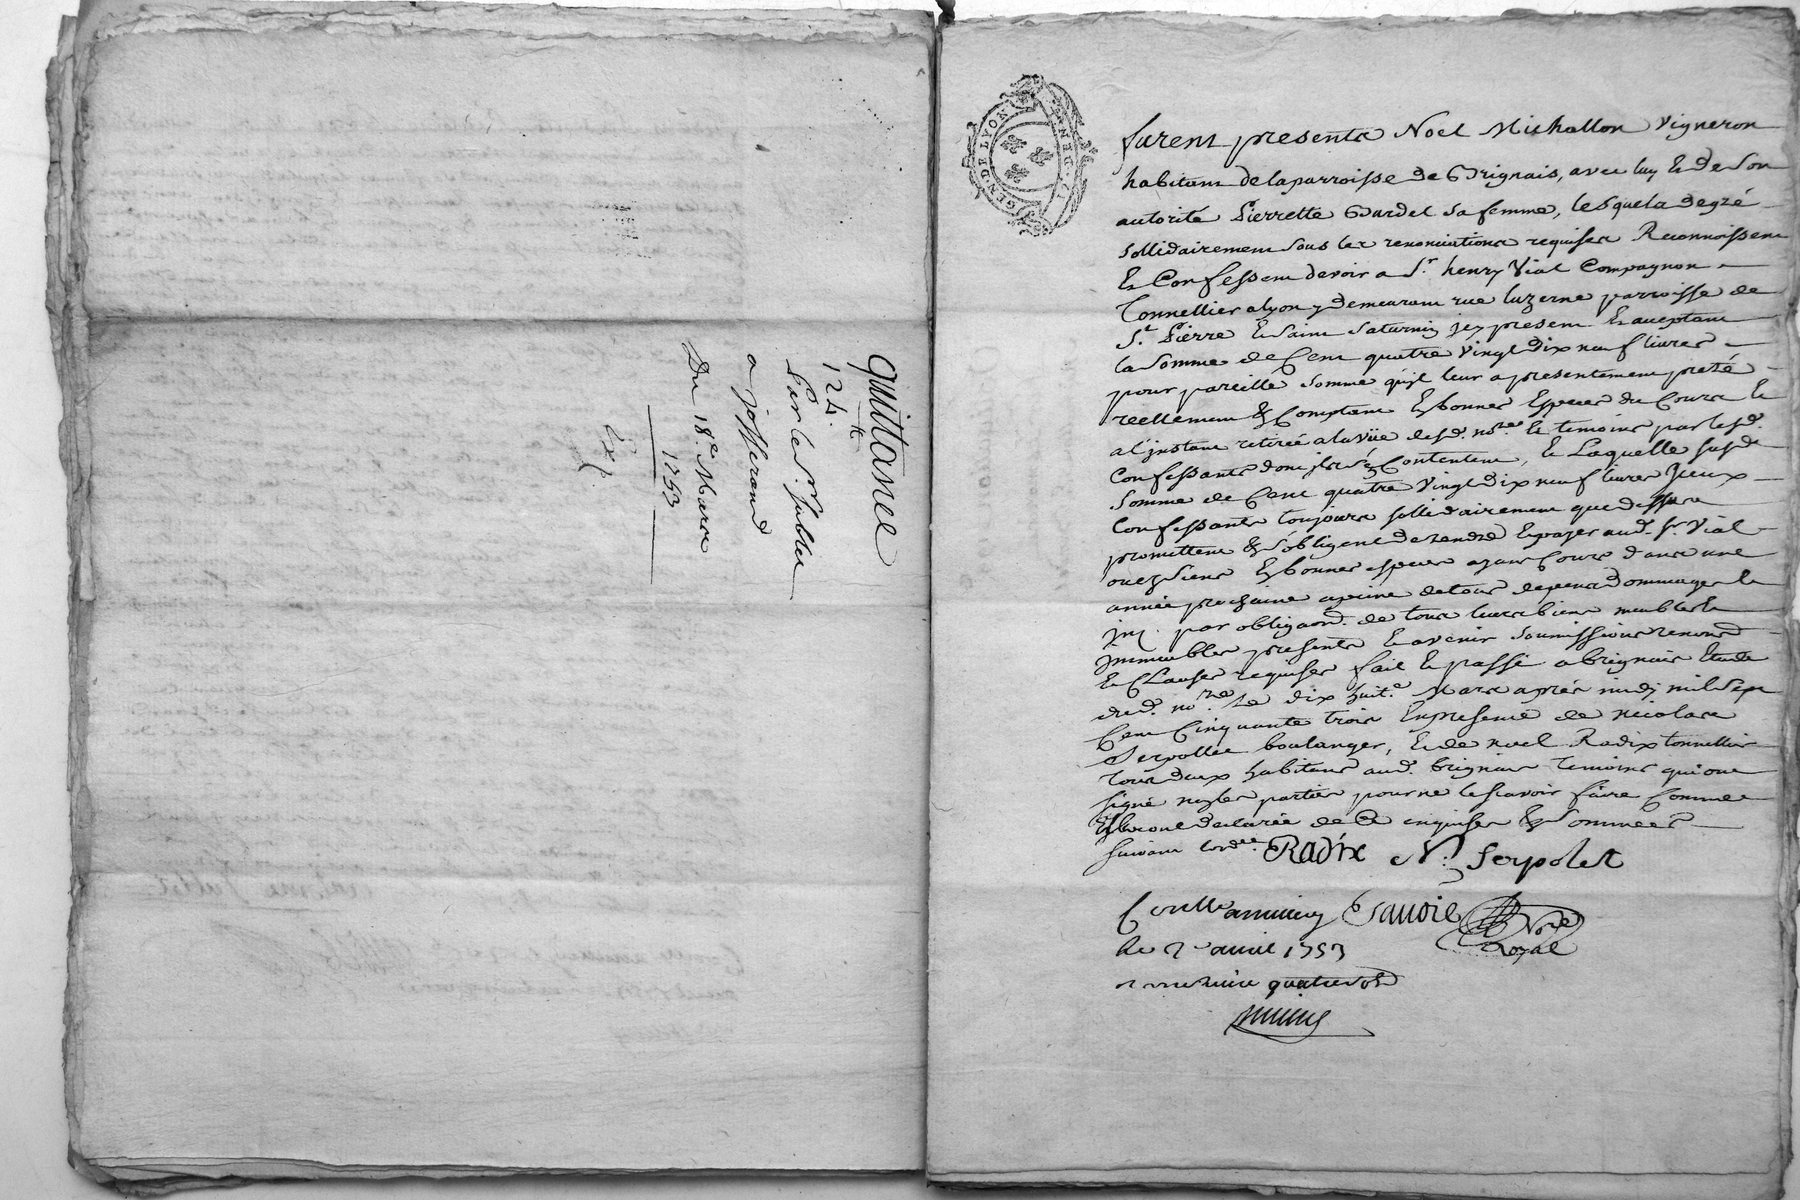 quittance
124.tt
Par le Sr. fablou
a jossserand
Du 18.e Mars
1753
Exp.
GEN. DE LYON
furent presents Noel Michallon Vigneron
habitant de la parroisse de Brignais, avec luy & de son
autorité Pierrette Bardel sa femme, lesquels de gré
sollidairement sous les renonciations requises Reconnoissent
& Confessent devoir a Sr. henry Vial Compagnon
Tonnellier a lyon y demeurant rue luzerne parroisse de
St. Pierre & saint saturnin jcy present & acceptant
la somme de Cent quatre vingt dix neuf livres
pour pareille somme qu'jl leur a presentement presté
reellement & Comptant En bonnes Especes du Cours &
a l'jnstant retirée a la vüe desd. nore. & temoins par lesd.
Confessants dont jls se Contentent, & Laquelle susde
somme de Cent quatre vingt dix neuf livres jceux
Confessants toujours sollidairement que dessus
promettent & s'obligent de rendre & payer aud. Sr. Vial
ou es siens En bonnes especes ayant Cours dans une
année prochaine a peine de tous depens dommages &
jnt. par obligaon. de tous leurs biens meubles &
jmmeubles presents & avenir soumissions renond
& Clauses requises fait & passé a brignais Etude
dud. nore. Le dix huit.e Mars aprés midj mil sept
Cent Cinquante trois En presence de nicolas
Serpollet boulanger, & de noel Radix tonnellier
tous deux habitans aud. brignais temoins qui ont
signé non les parties pour ne le scavoir faire Comme
Elles ont declarée de Ce enquises & sommées
suivant l'ordce. Radix N: Serpolet
Conlle a millery Esavoie Nore
Royal
le 2e avril 1753
quatre sols